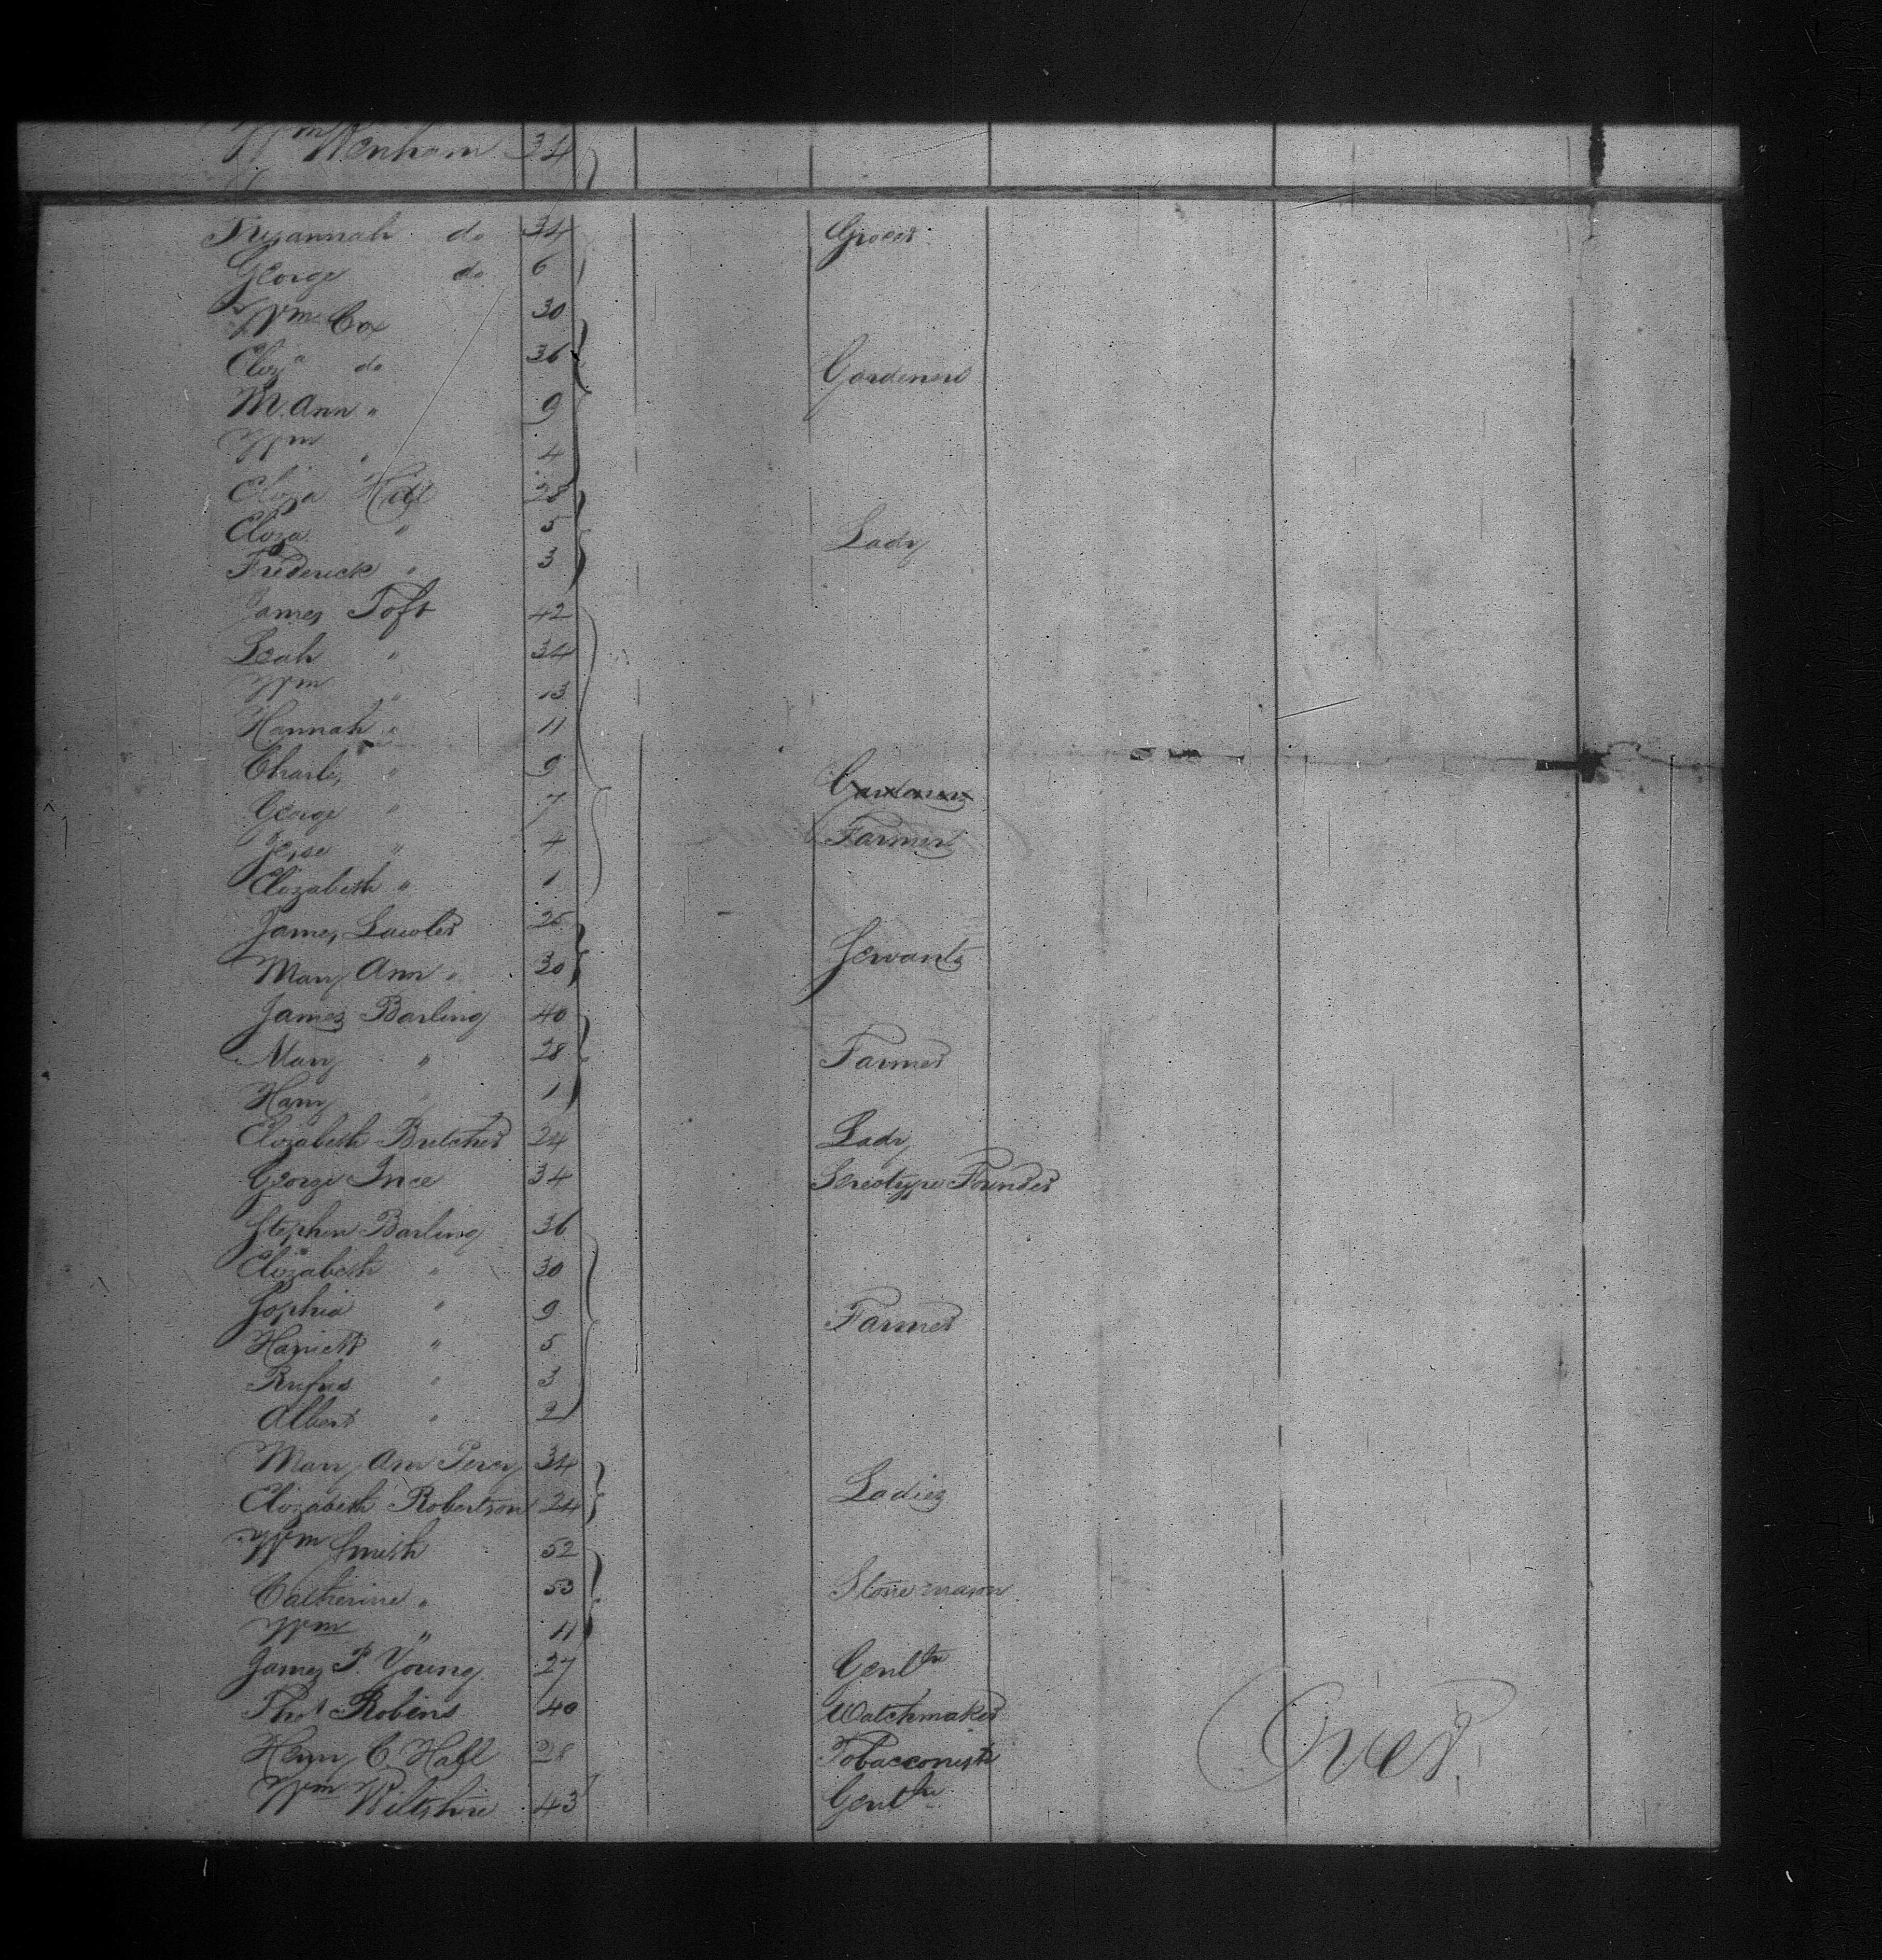 Wm Wenham 34
Susannah do 34 Grocer
George do 6
Wm Cox 30
Eliza do 36 Gardener
M. Ann " 9
Wm " 4
Eliza 28
Eliza " 5 Lady
Frederick " 3
James Toft 42
Leah " 34
Wm " 13
Hannah " 11
Charles " 9
George " 7 Gardener
Jesse " 4 Farmer
Elizabeth " 1
James Lawler 25 Servants
Mary Ann " 30
James Barling 40
Mary " 28 Farmer
Harry " 1
Elizabeth Butcher 24 Lady
George Ince 34 Stereotype Founder
Stephen Barling 36
Elizabeth " 30
Sophia " 9 Farmer
Harriett " 5
Rufus " 3
Albert " 2
Mary Ann Percy 34 Ladies
Elizabeth Robertson 24
Wm Smith 52
Catherine " 53 Stone mason
Wm " 11
James P. Young 27 Gentln
Thos Robins 40 Watchmaker
Henry C. Hall 28 Tobacconist
Wm Wiltshire 43 Gentln
Over